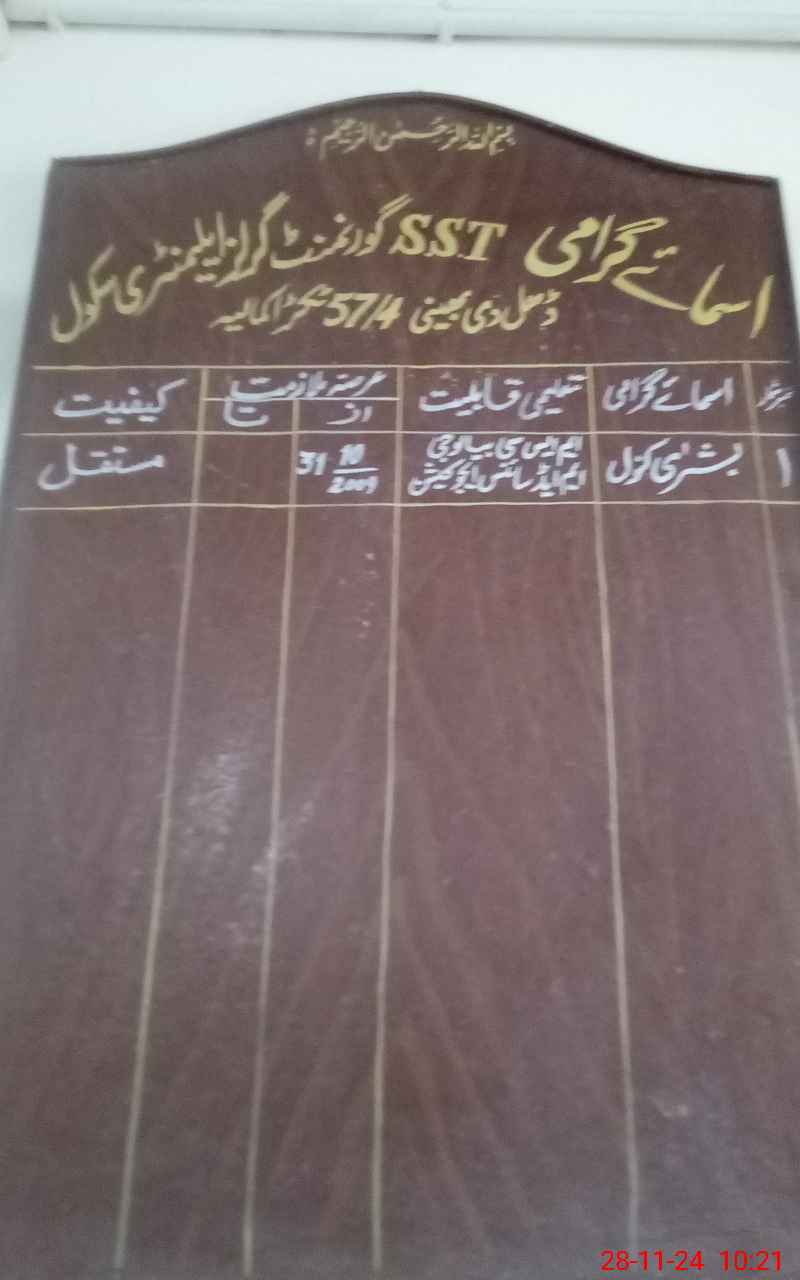 بسم اللہ الرحمن الرحیم
اسمائے گرامی S.S.T گورنمنٹ گرلز ایلیمنٹری سکول
ڈھل دی بھینی 57/4 ٹکڑا کمالیہ
نمبر شمار اسمائے گرامی تعلیمی قابلیت عرصہ ملازمت کیفیت
از تا
۱ بشریٰ کنول ایم ایس سی بیالوجی 31 10/2009 مستقل
ایم ایڈ سائنس ایجوکیشن
28-11-24 10:21